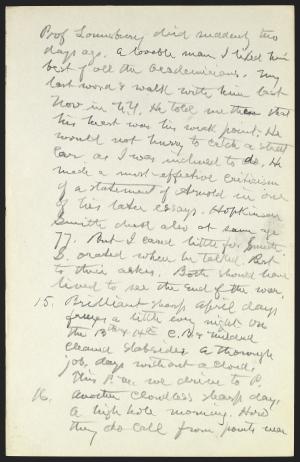 Prof Lounsbury died suddenly two
days ago. A lovable man, I liked him
best of all the academicians. My
last words & walk with him last
Nov in N.Y. He told me then that
his heart was his weak point; He
would not hurry to catch a street
car, as I was inclined to do. He
made a most effective criticism
of a statement of Arnold in one
of his later essays. Hopkinson
Smith died also at same age
77. But I cared little for Smith.
S. orated when he talked. But
to their ashes. Both should have
lived to see the end of the war.
15. Brilliant sharp April days
freezes a little every night. On
the 13th & 14th C.B. & Mildred
cleaned Slabsides a thorough
job, days without a cloud.
This P.m. we drive to P.
16. Another cloudless sharp day,
a high hole morning. How
they do call from points near